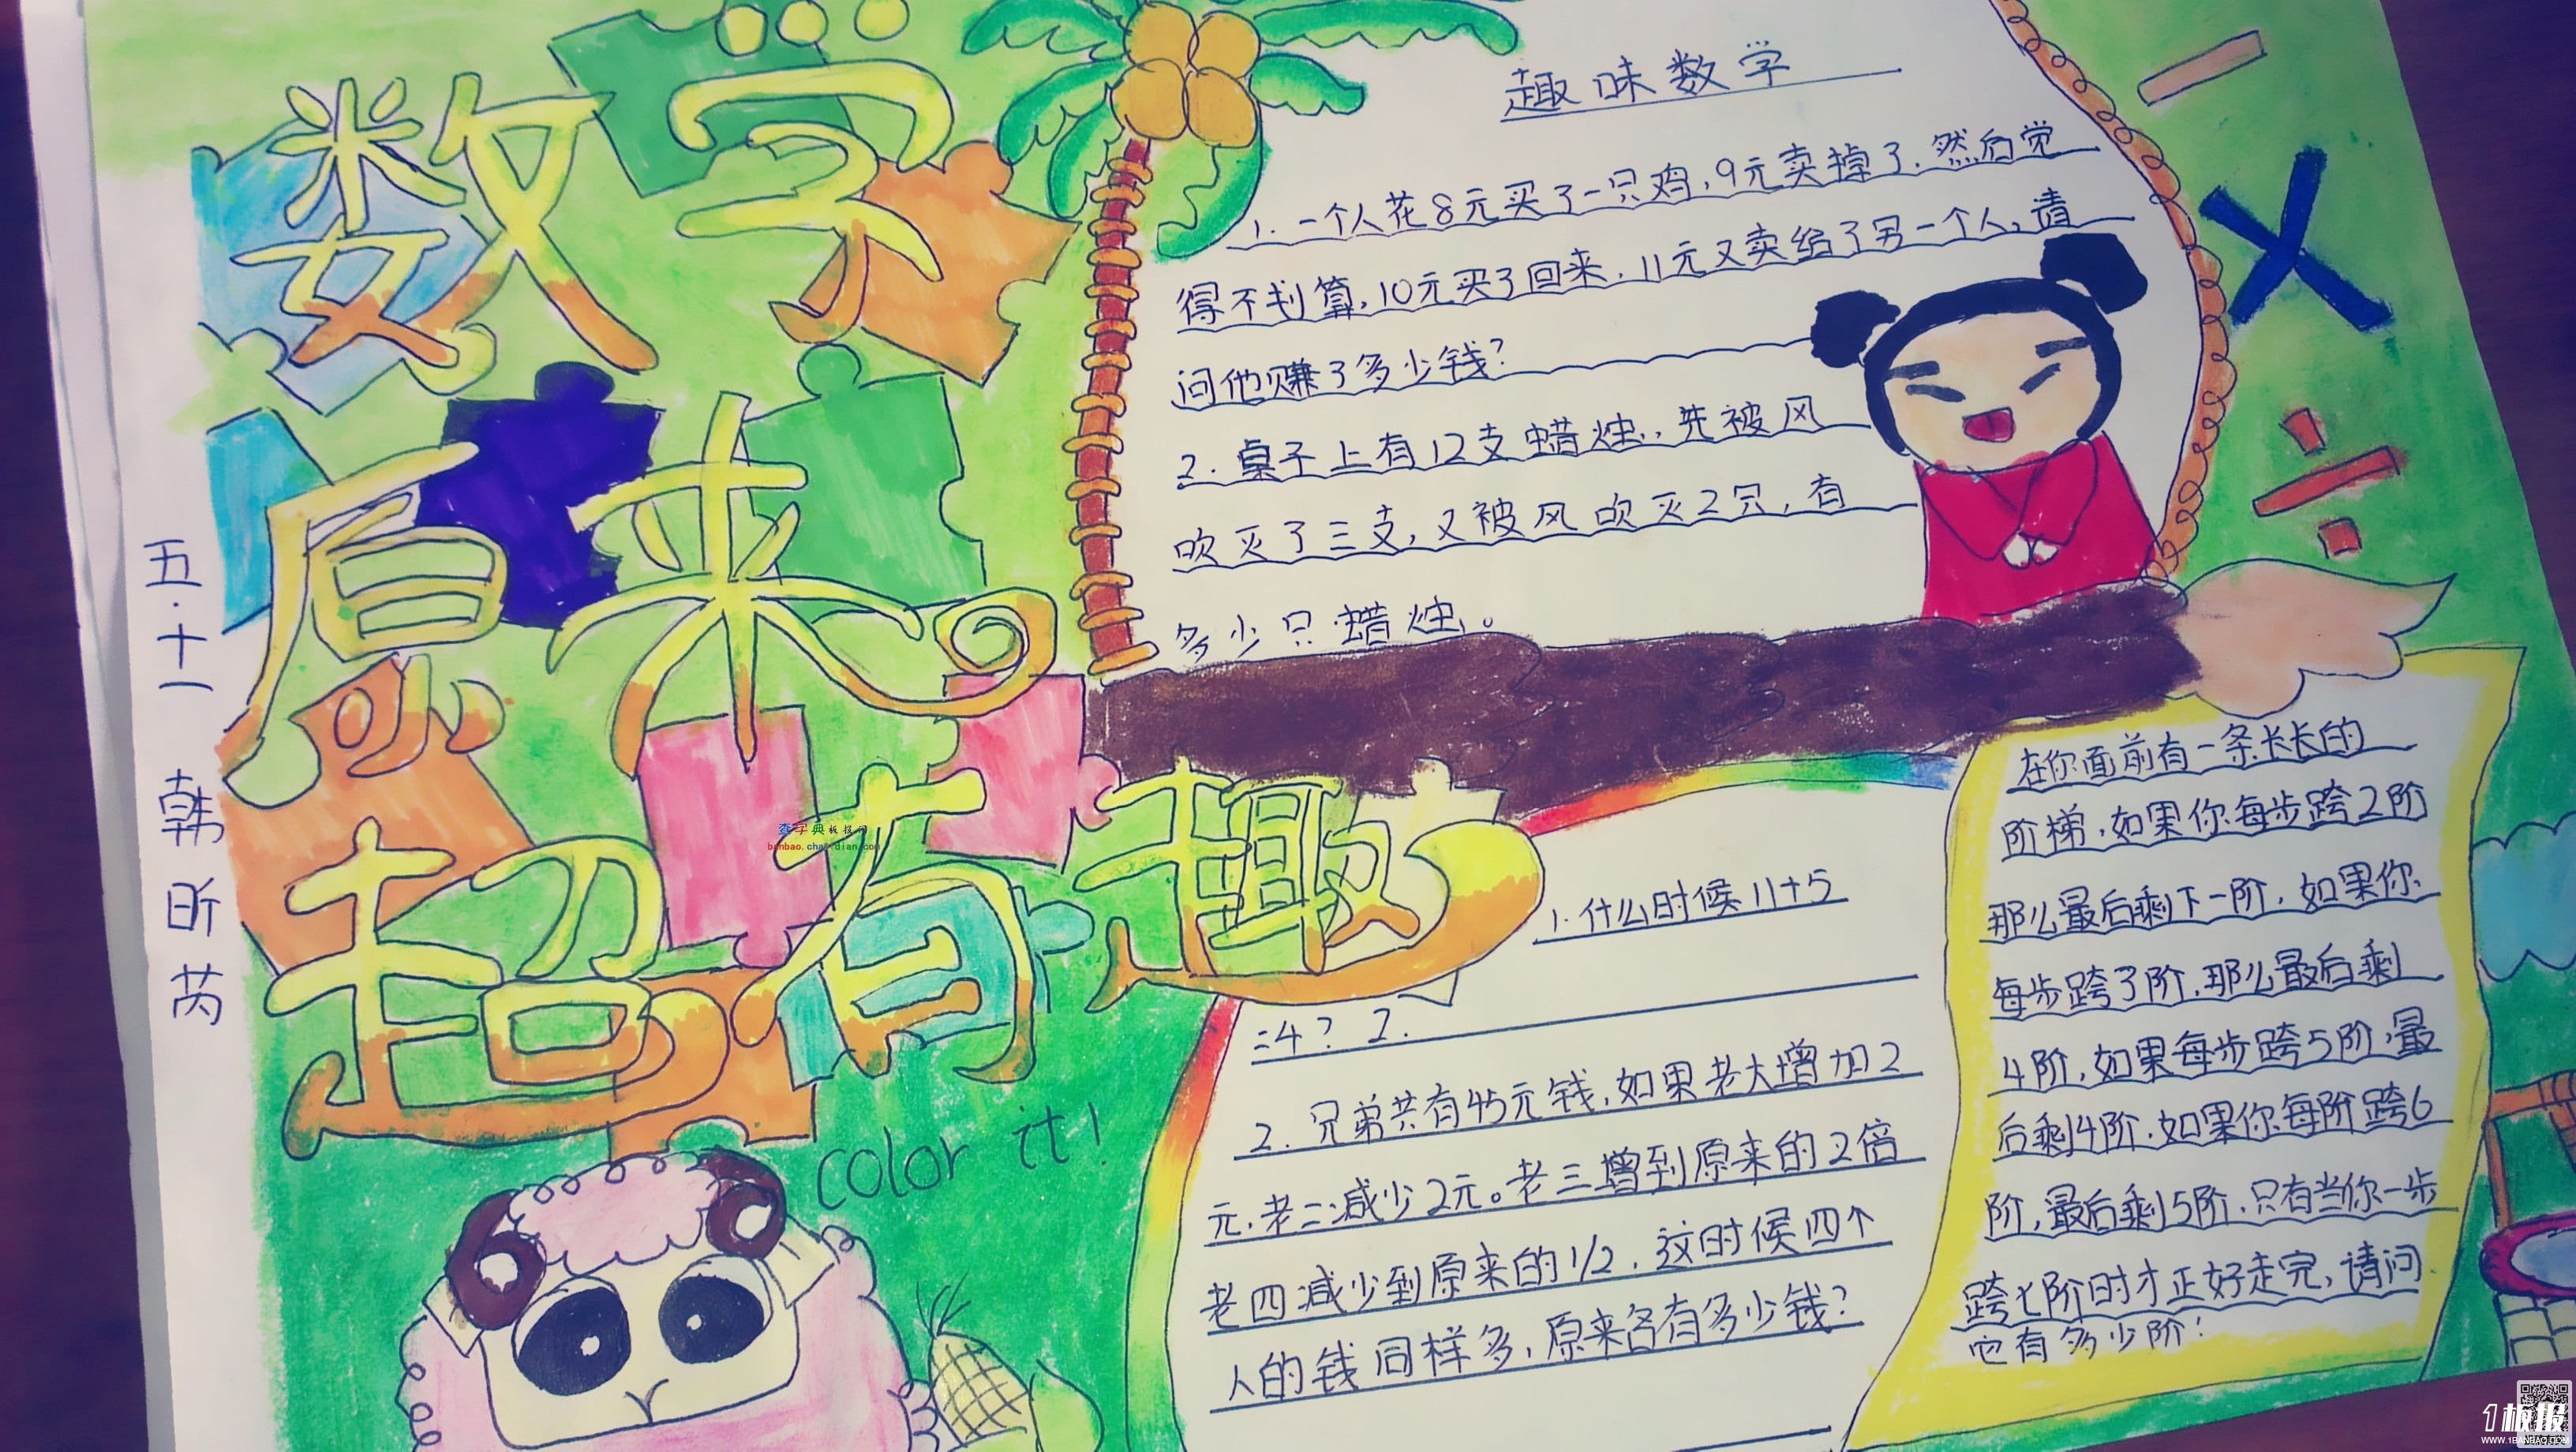 数学
原来
超有趣
五.十一 韩昕芮
color it!
趣味数学
1. 一个人花8元买了一只鸡,9元卖掉了.然后觉
得不划算,10元买了回来,11元又卖给了另一个人,请
问他赚了多少钱?
2. 桌子上有12支蜡烛,先被风
吹灭了三支,又被风吹灭2只,有
多少只蜡烛。
1.什么时候11+5
=4? 2.
2. 兄弟共有45元钱,如果老大增加2
元,老二减少2元。老三增到原来的2倍
老四减少到原来的1/2,这时候四个
人的钱同样多,原来各有多少钱?
在你面前有一条长长的
阶梯,如果你每步跨2阶
那么最后剩下一阶,如果你
每步跨3阶,那么最后剩
4阶,如果每步跨5阶,最
后剩4阶.如果你每阶跨6
阶,最后剩5阶,只有当你一步
跨七阶时才正好走完,请问
它有多少阶!
查字典板报网
banbao.chazidian.com
1板报
WWW.1BANBAO.COM